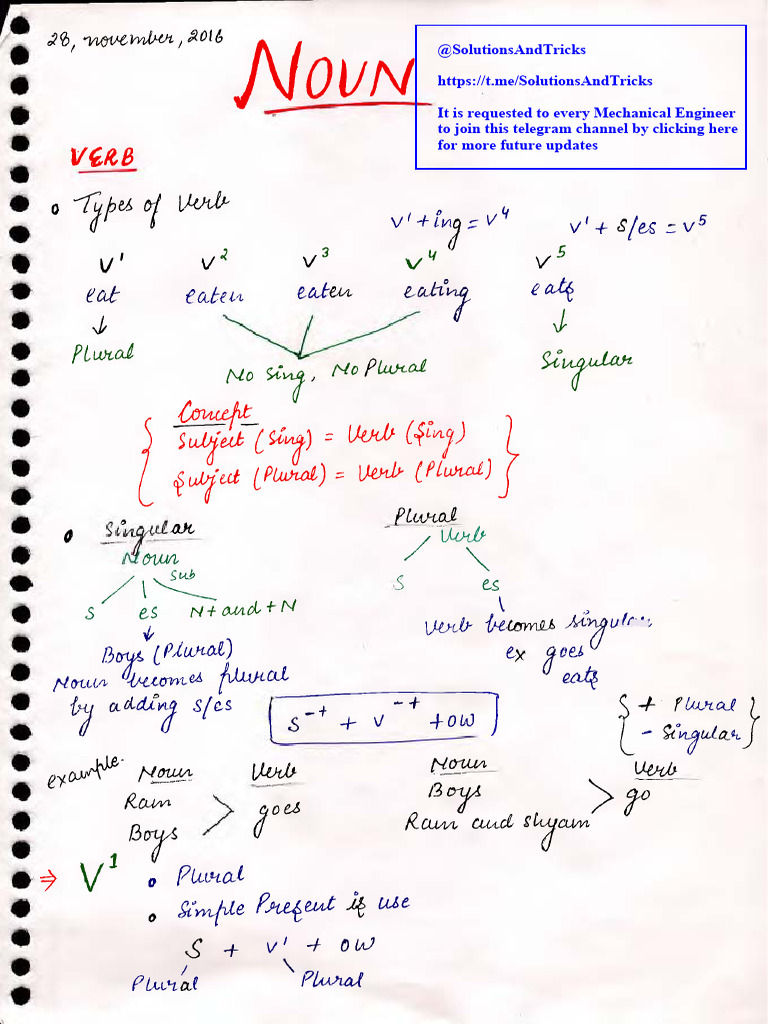 28, november, 2016
NOUN
@SolutionsAndTricks
https://t.me/SolutionsAndTricks
It is requested to every Mechanical Engineer
to join this telegram channel by clicking here
for more future updates
VERB
o Types of Verb
V¹+ing = V⁴
V¹ + s/es = V⁵
V¹ V² V³ V⁴ V⁵
eat eaten eaten eating eats
↓ ↓
Plural Singular
No Sing, No Plural
Concept
{ Subject (Sing) = Verb (Sing) }
{ Subject (Plural) = Verb (Plural) }
o Singular
Noun
sub
S es N+and+N
↓
Boys (Plural)
Noun becomes plural
by adding s/es
Plural
Verb
S es
Verb becomes singular
ex goes
eats
S⁻⁺ + V⁻⁺ + OW
{ + Plural }
{ - Singular }
example.
Noun Verb
Ram > goes
Boys
Noun Verb
Boys > go
Ram and shyam
⇒ V¹ o Plural
o Simple Present is use
S + V¹ + OW
Plural Plural